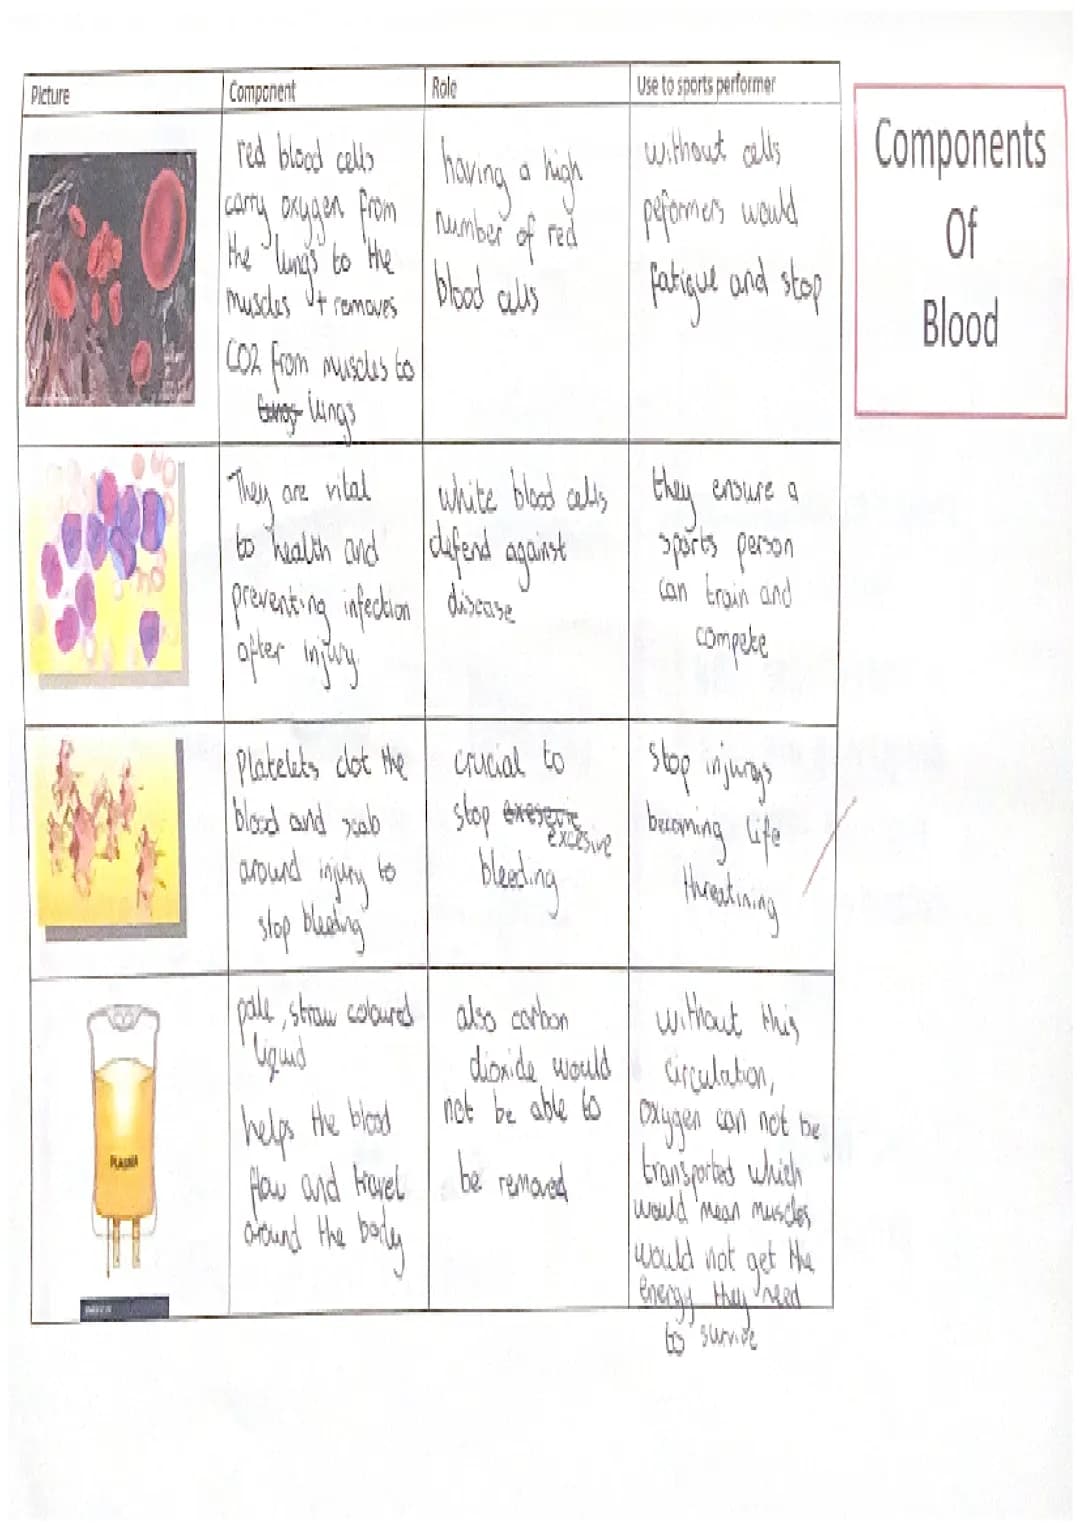 Components
Of
Blood
Picture
Component
Role
Use to sports performer
red blood cells
carry oxygen from
the lungs to the
muscles + removes
CO2 from muscles to
lungs
having a high
number of red
blood cells
without cells
peformers would
fatigue and stop
They are vital
to health and
preventing infection
after injury.
white blood cells
defend against
disease
they ensure a
sports person
can train and
compete
Platelets clot the
blood and scab
around injury to
stop bleeding
crucial to
stop
excesive
bleeding
Stop injurys
becoming life
threatining
pale, straw coloured
liquid
helps the blood
flow and travel
around the body
also carbon
dioxide would
not be able to
be removed
without this
circulation,
oxygen can not be
transported which
would mean muscles
would not get the
energy they need
to survive
PLASMA